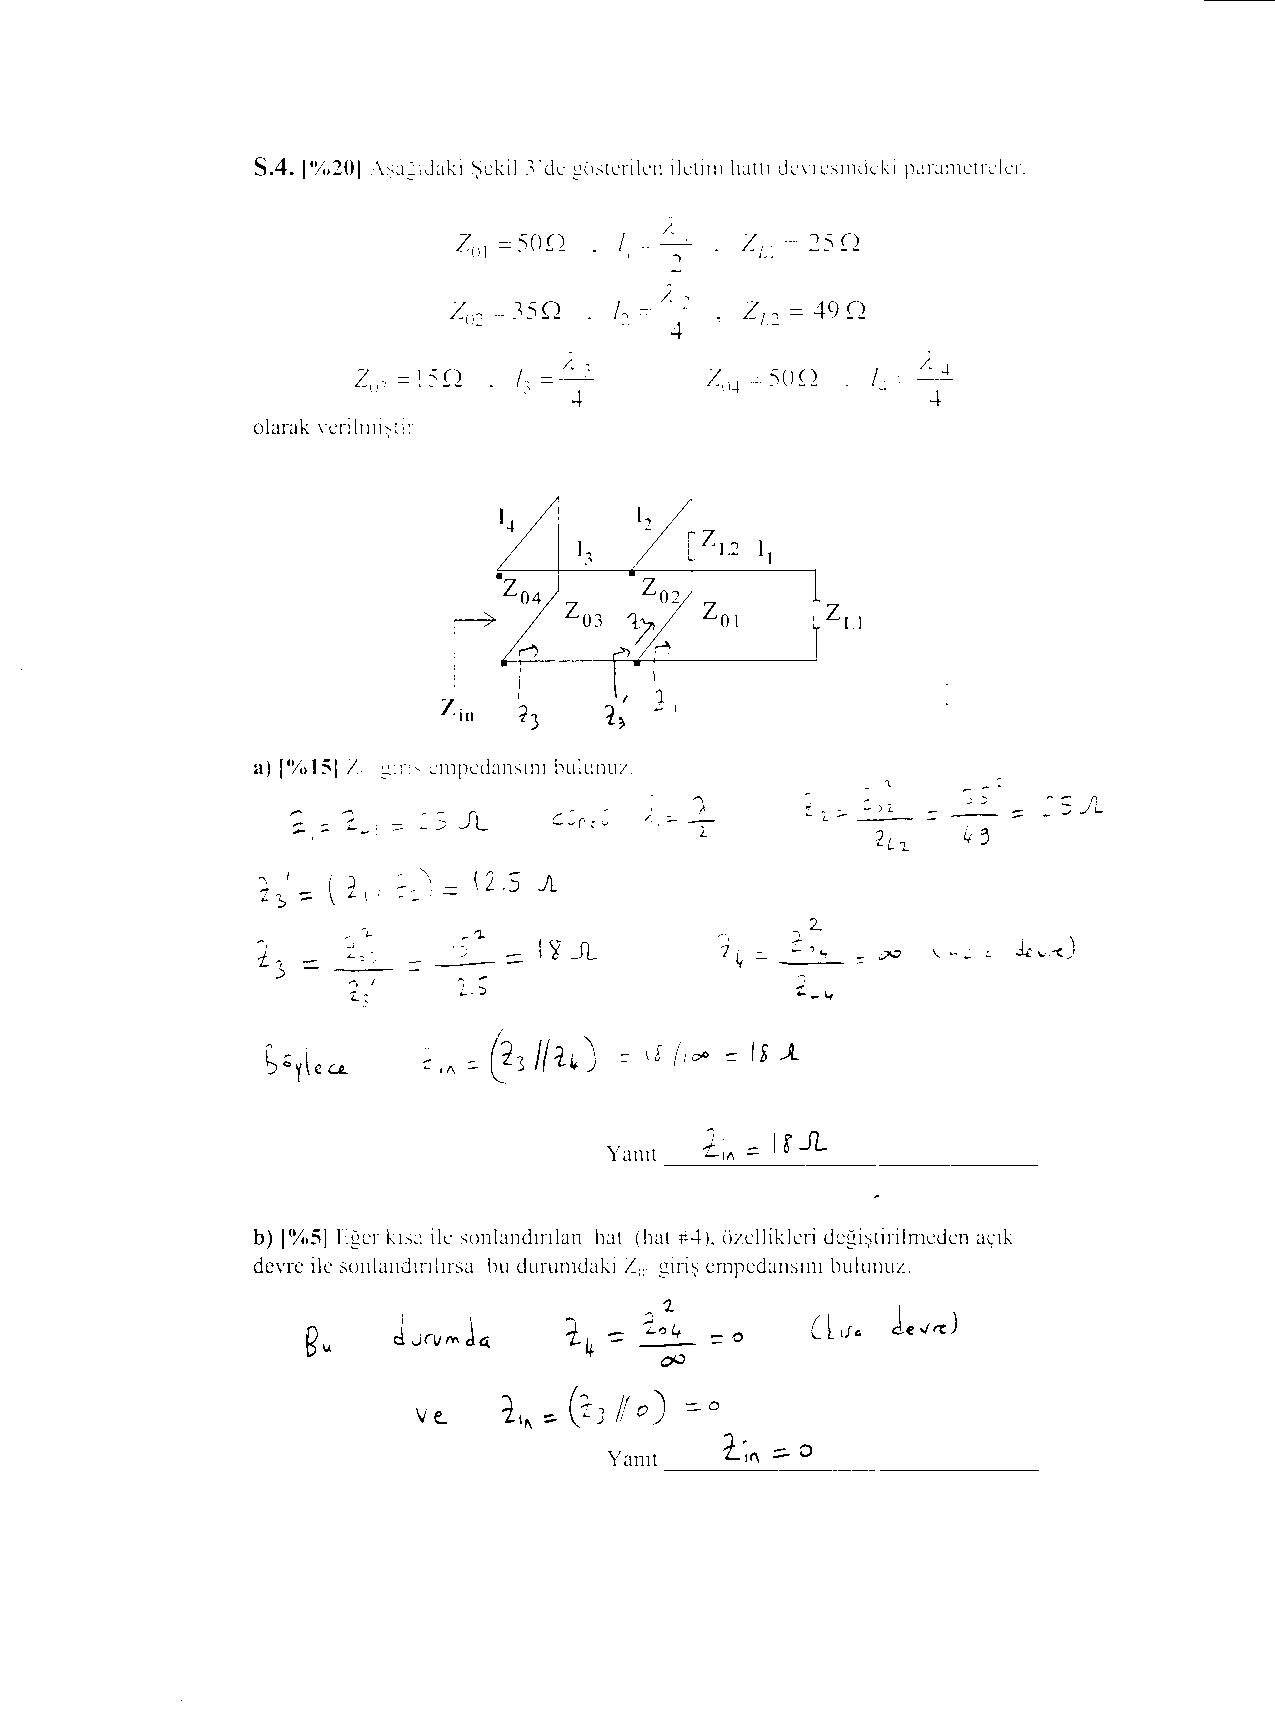 S.4. [%20] Aşağıdaki Şekil 3'de gösterilen iletim hattı devresindeki parametreler.
Z01 = 50Ω , l1 = λ1/2 , ZL1 = 25Ω
Z02 = 35Ω , l2 = λ2/4 , ZL2 = 49Ω
Z03 = 15Ω , l3 = λ3/4 Z04 = 50Ω , l4 = λ4/4
olarak verilmiştir
l4 l2
l3 ZL2 l1
Z04 Z02
Z03 Z2 Z01 ZL1
Zin Z3 Z3' Z1
a) [%15] Z giriş empedansını bulunuz.
Z1 = ZL1 = 25 Ω l1 = λ/2 Z2 = Z02²/ZL2 = 35²/49 = 25 Ω
Z3' = (Z1 // Z2) = 12.5 Ω
Z3 = Z03²/Z3' = 15²/12.5 = 18 Ω Z4 = Z04²/ZL4 = ∞ devre)
Böylece Zin = (Z3 // Z4) = 18 // ∞ = 18 Ω
Yanıt Zin = 18 Ω
b) [%5] Eğer kısa ile sonlandırılan hat (hat #4), özellikleri değiştirilmeden açık
devre ile sonlandırılırsa bu durumdaki Zin giriş empedansını bulunuz.
Bu durumda Z4 = Z04²/∞ = 0 (kısa devre)
ve Zin = (Z3 // 0) = 0
Yanıt Zin = 0